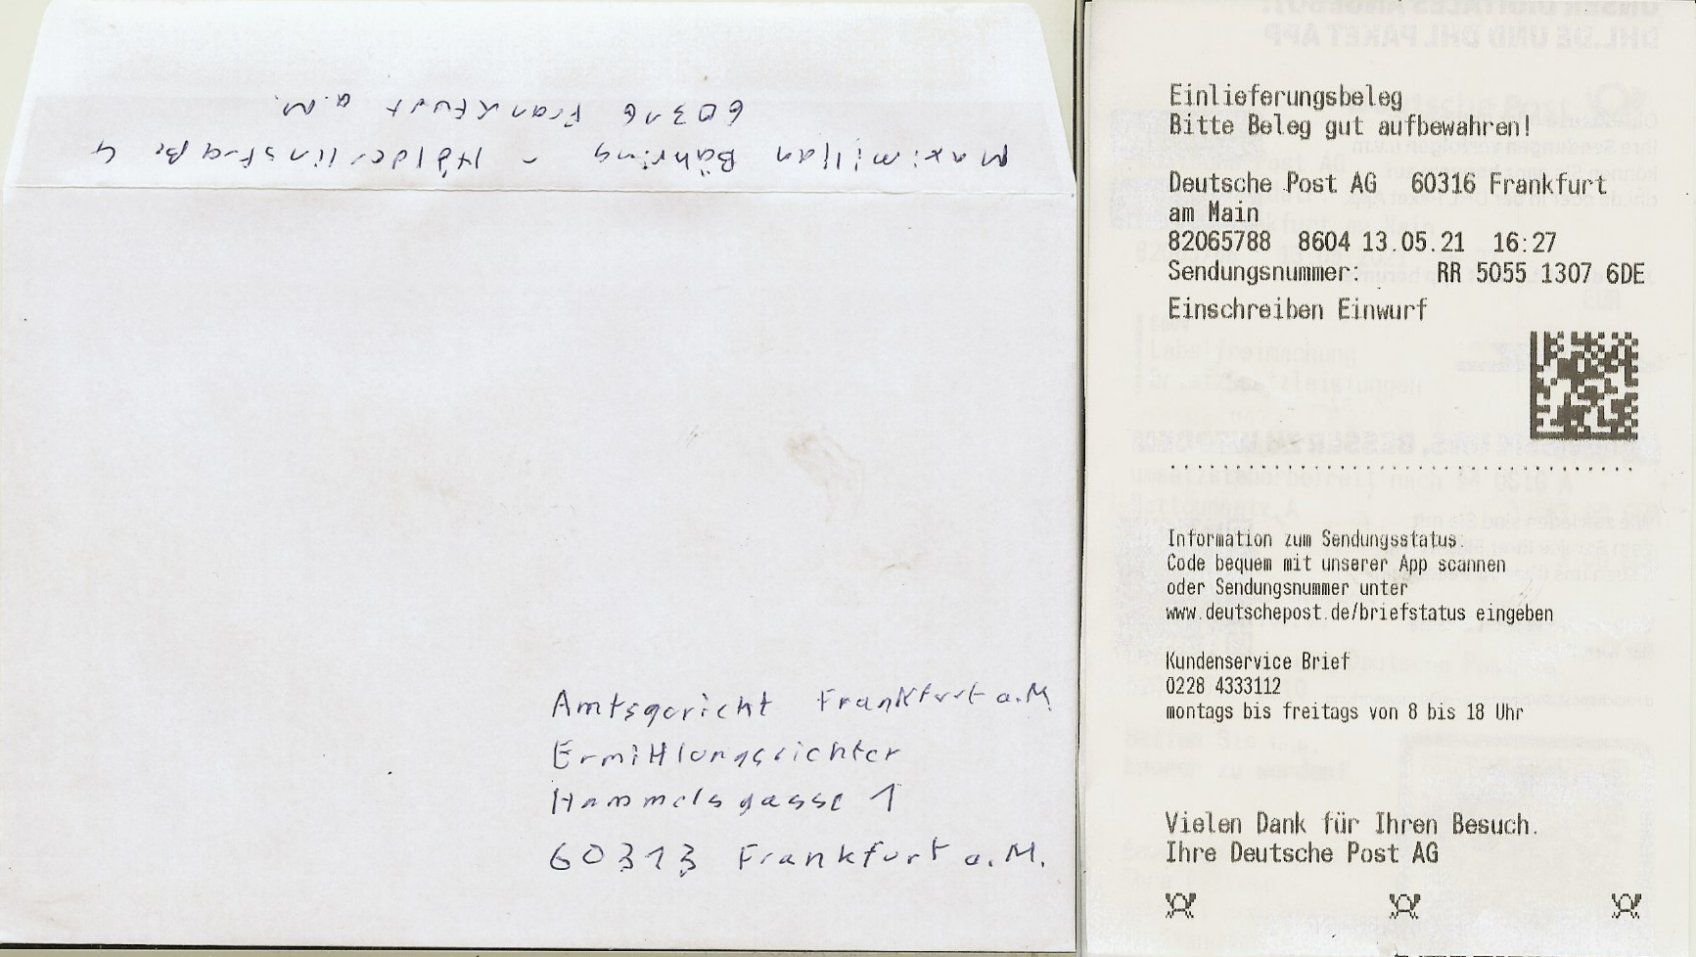 Maximilian Bähring - Hölderlinstraße 4
60316 Frankfurt a.M.
Amtsgericht Frankfurt a.M.
Ermittlungsrichter
Hammelsgasse 1
60313 Frankfurt a.M.
Einlieferungsbeleg
Bitte Beleg gut aufbewahren!
Deutsche Post AG 60316 Frankfurt
am Main
82065788 8604 13.05.21 16:27
Sendungsnummer: RR 5055 1307 6DE
Einschreiben Einwurf
Information zum Sendungsstatus.
Code bequem mit unserer App scannen
oder Sendungsnummer unter
www.deutschepost.de/briefstatus eingeben
Kundenservice Brief
0228 4333112
montags bis freitags von 8 bis 18 Uhr
Vielen Dank für Ihren Besuch.
Ihre Deutsche Post AG